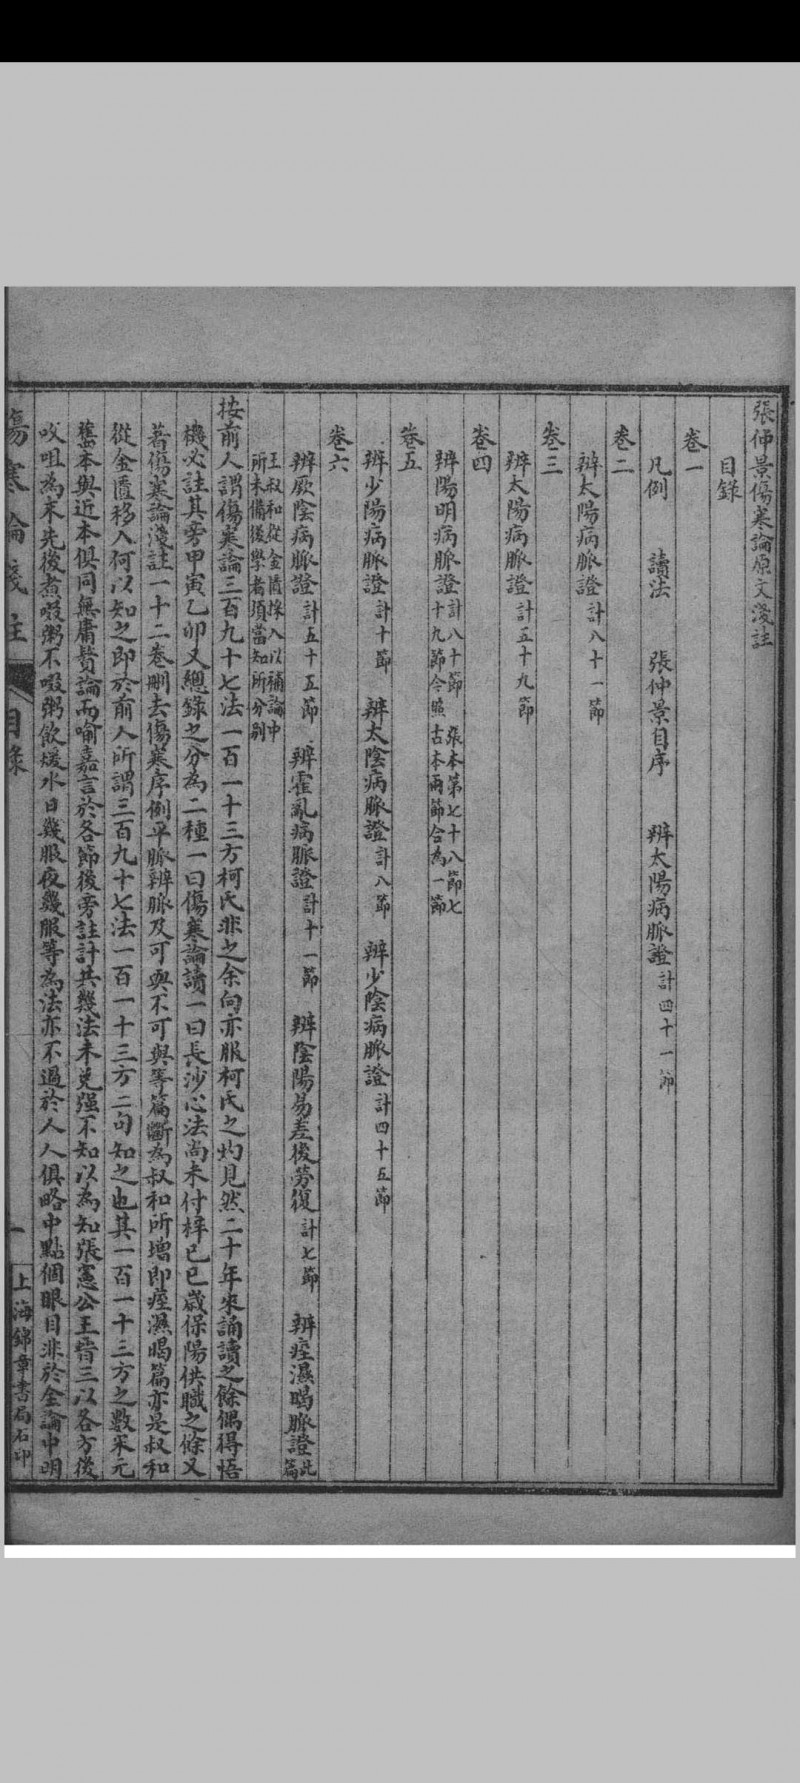 張仲景傷寒論原文淺註
目錄
卷一
凡例　讀法　張仲景自序　辨太陽病脈證計四十一節
卷二
辨太陽病脈證計八十一節
卷三
辨太陽病脈證計五十九節
卷四
辨陽明病脈證計八十節　張本第七十八節七十九節今照古本兩節合為一節
卷五
辨少陽病脈證計十節　辨太陰病脈證計八節　辨少陰病脈證計四十五節
卷六
辨厥陰病脈證計五十五節　辨霍亂病脈證計十一節　辨陰陽易差後勞復計七節　辨痙濕暍脈證此篇
王叔和從金匱採入以補論中所未備後學者須當知所分別
按前人謂傷寒論三百九十七法一百一十三方柯氏非之余向亦服柯氏之灼見然二十年來誦讀之餘偶得悟
機必註其旁甲寅乙卯又總錄之分為二種一曰傷寒論讀一曰長沙心法尚未付梓己巳歲保陽供職之餘又
著傷寒論淺註一十二卷刪去傷寒序例平脈辨脈及可與不可與等篇斷為叔和所增即痙濕暍篇亦是叔和
從金匱移入何以知之即於前人所謂三百九十七法一百一十三方二句知之也其一百一十三方之數宋元
舊本與近本俱同無庸贅論而喻嘉言於各節後旁註計共幾法未免强不知以為知張憲公王晉三以各方後
㕮咀為末先後煮啜粥不啜粥飲煖水日幾服夜幾服等為法亦不過於人人俱略中點個眼目非於全論中明
傷寒論淺註
目錄
一
上海錦章書局石印